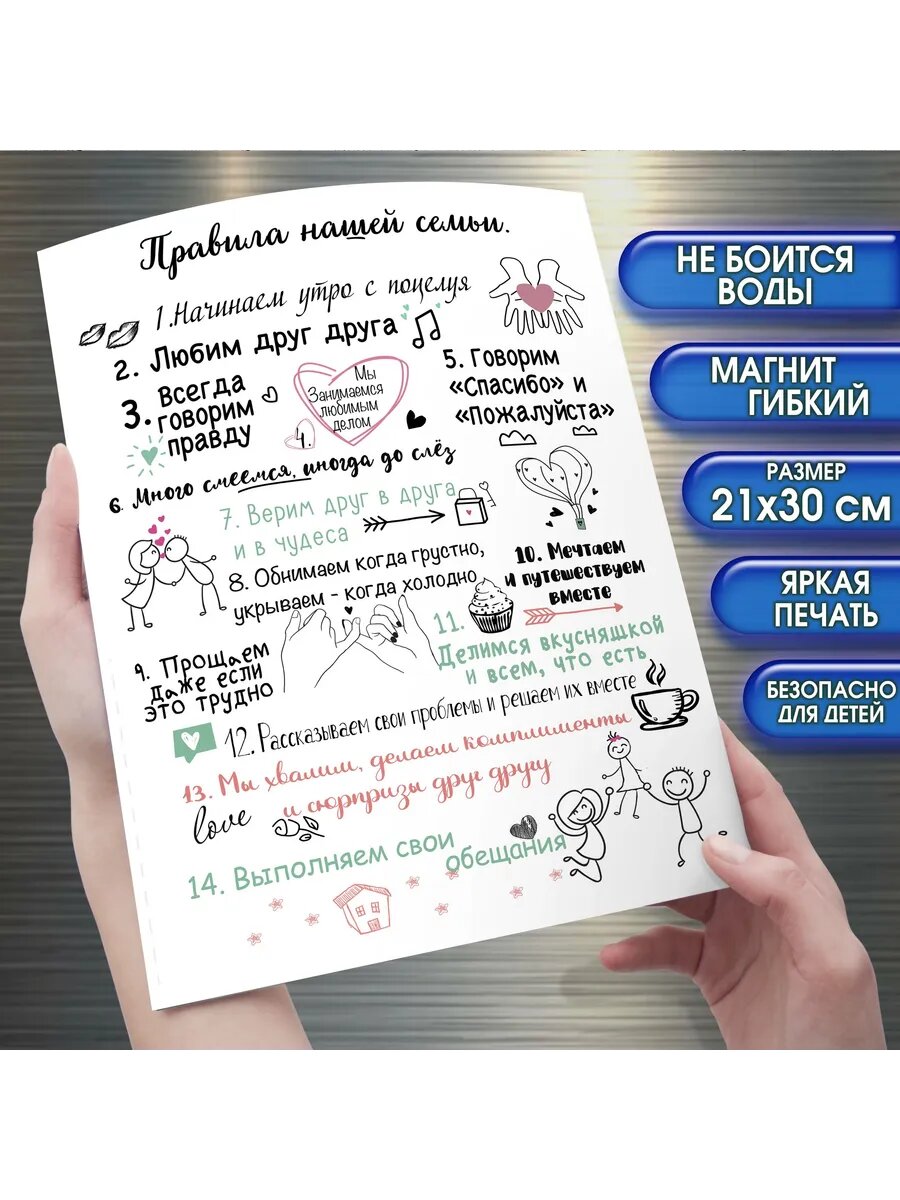 Правила нашей семьи.
1.Начинаем утро с поцелуя
2. Любим друг друга
3. Всегда
говорим
правду
4.
Мы
Занимаемся
любимым
делом
5. Говорим
«Спасибо» и
«Пожалуйста»
6. Много смеемся, иногда до слёз
7. Верим друг в друга
и в чудеса
8. Обнимаем когда грустно,
укрываем - когда холодно
9. Прощаем
даже если
это трудно
10. Мечтаем
и путешествуем
вместе
11.
Делимся вкусняшкой
и всем, что есть
12. Рассказываем свои проблемы и решаем их вместе
13. Мы хвалим, делаем комплименты
и сюрпризы друг другу
love
14. Выполняем свои
обещания
НЕ БОИТСЯ
ВОДЫ
МАГНИТ
ГИБКИЙ
РАЗМЕР
21х30 см
ЯРКАЯ
ПЕЧАТЬ
БЕЗОПАСНО
ДЛЯ ДЕТЕЙ